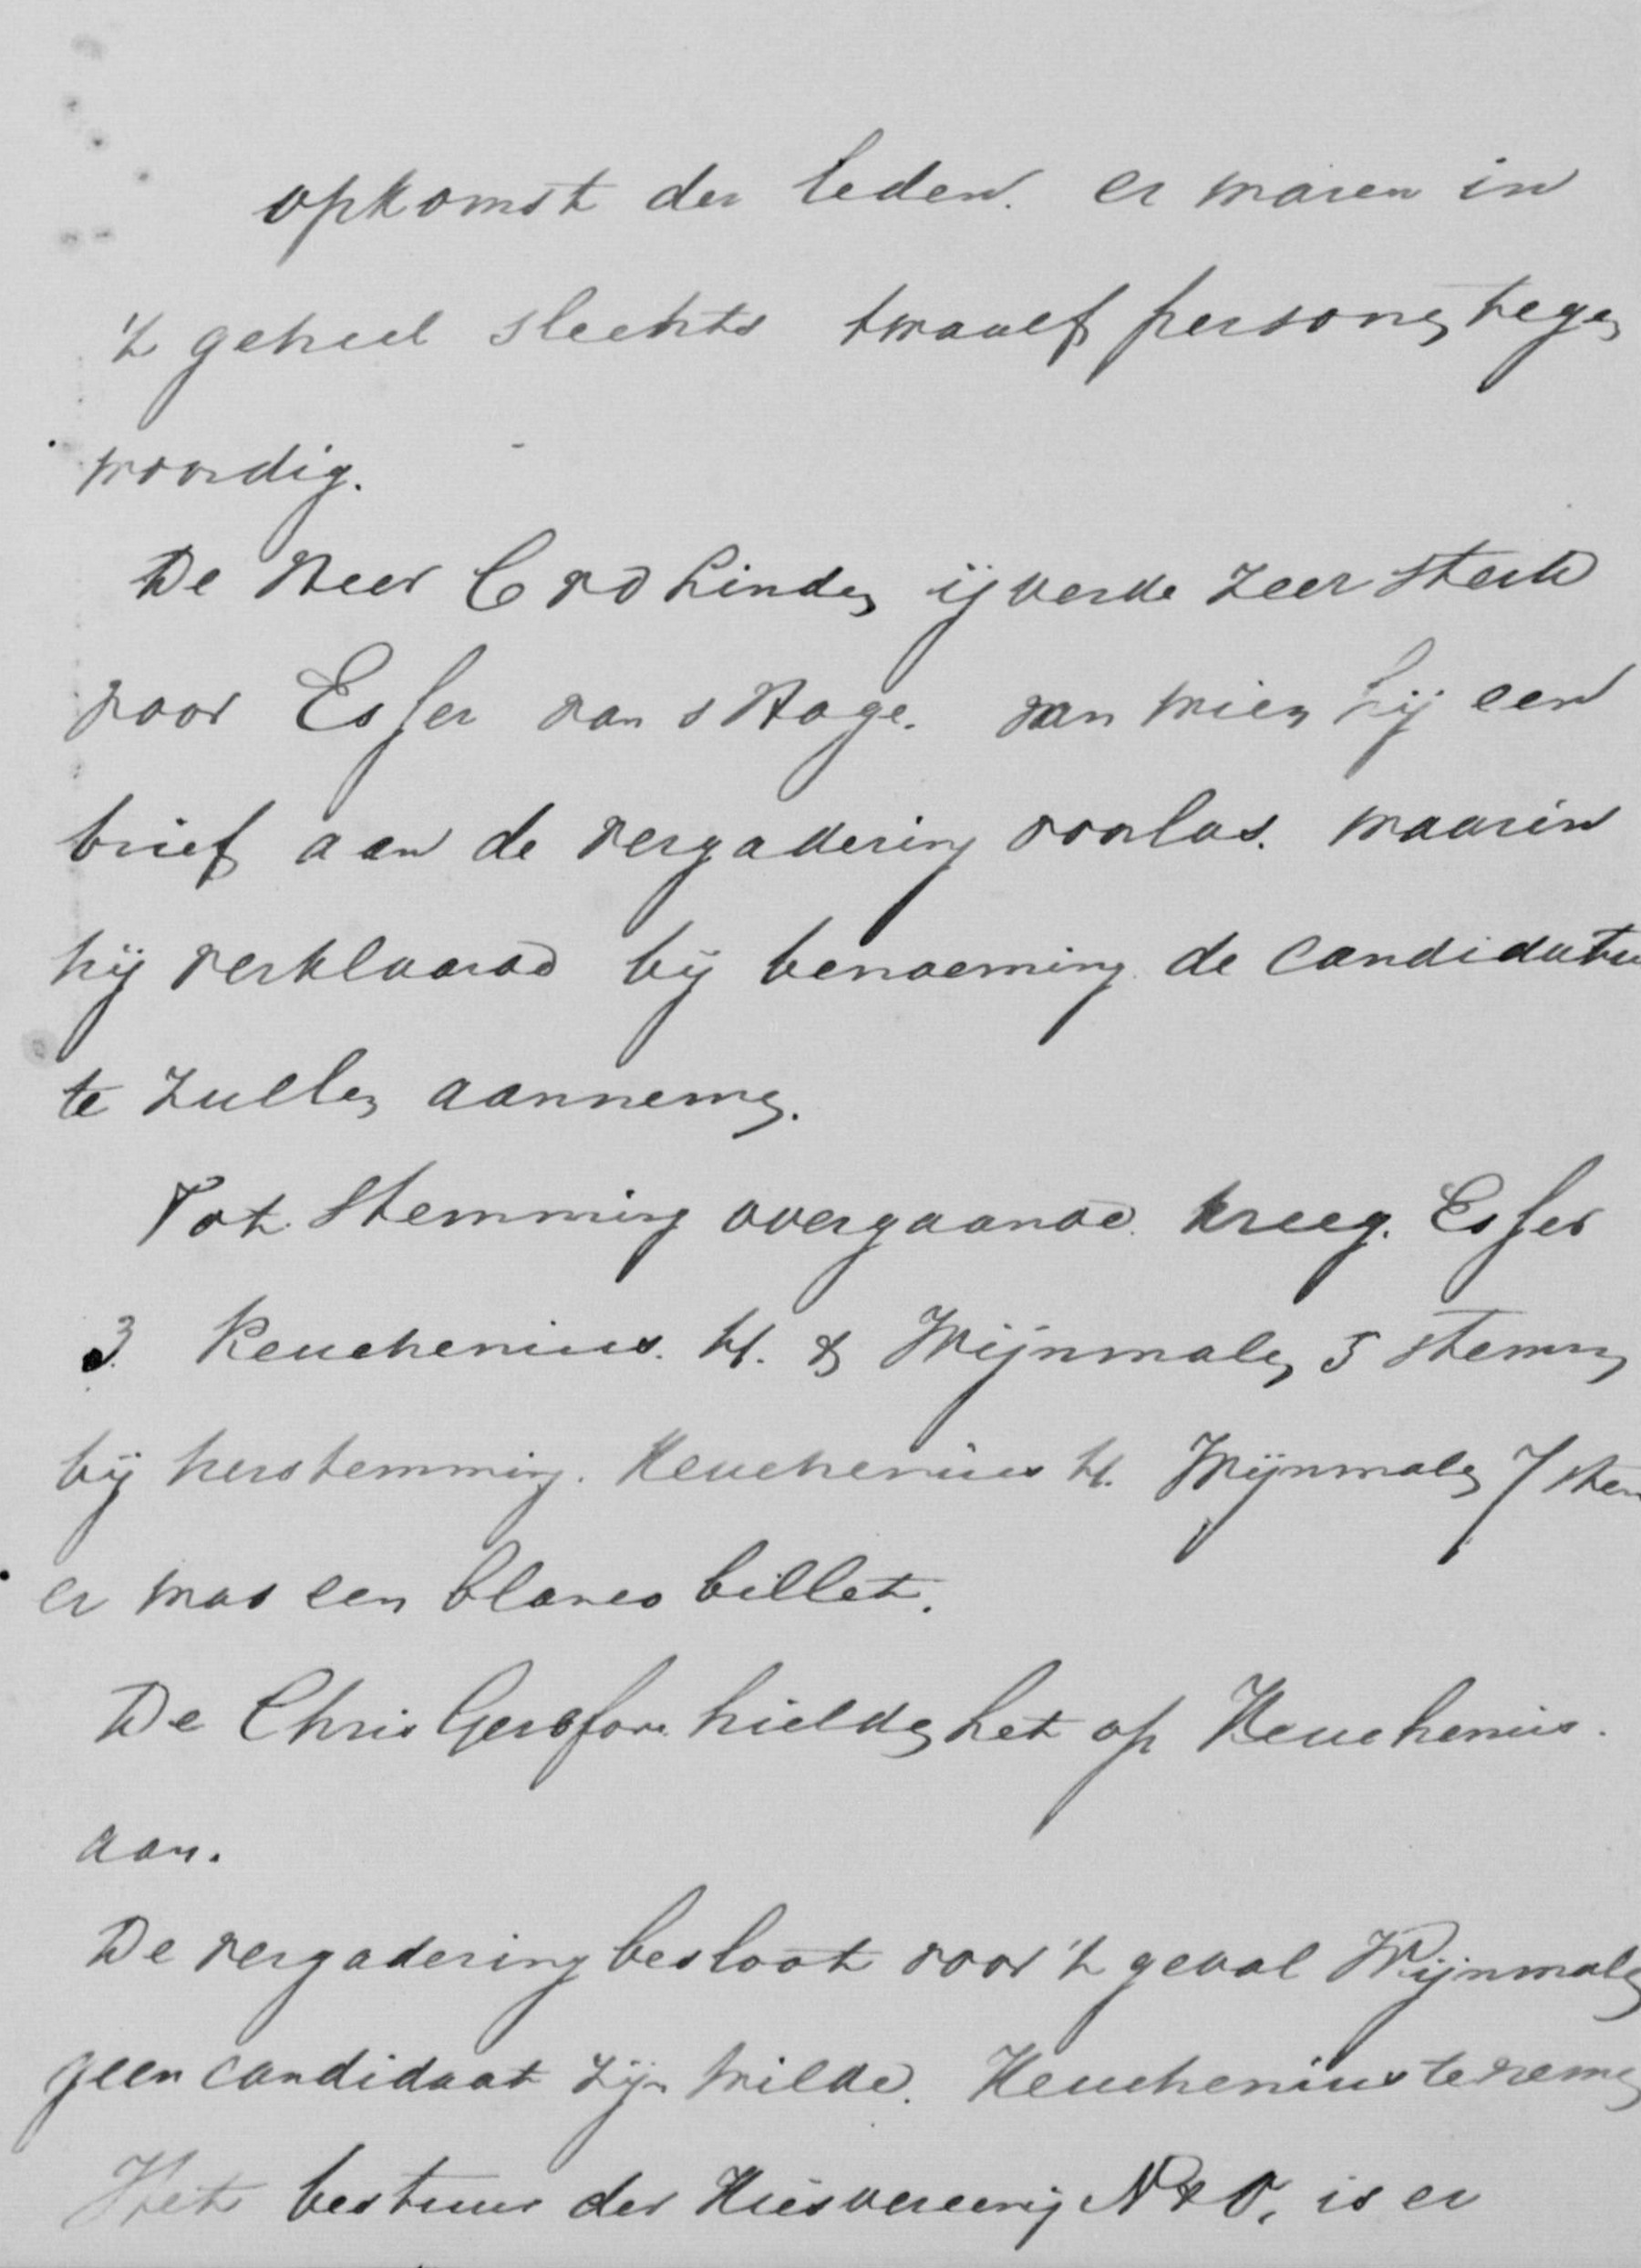 opkomst der leden. er waren in
't geheel slechts twaalf personen tegen
woordig.
De Heer C v d Linden ijverde zeer sterk
voor Esser van s Hage. van wien hij een
brief aan de vergadering voorlas. waarin
hij verklaard bij benoeming de candidatu
te zullen aannemen.
Tot stemming overgaande kreeg. Esser
3 Keuchenius. 4. & Wijnmalen 5 stemmen
bij herstemming. Keuchenius 4. Wijnmalen 7 stem
er was een blanco billet.
De Chris Geref hielden het op Keuchenius.
aan.
De vergadering besloot voor 't geval Wijnmalen
geen candidaat zijn wilde. Keuchenius te nemen
Het bestuur der Kiesvereenig N & O, is er